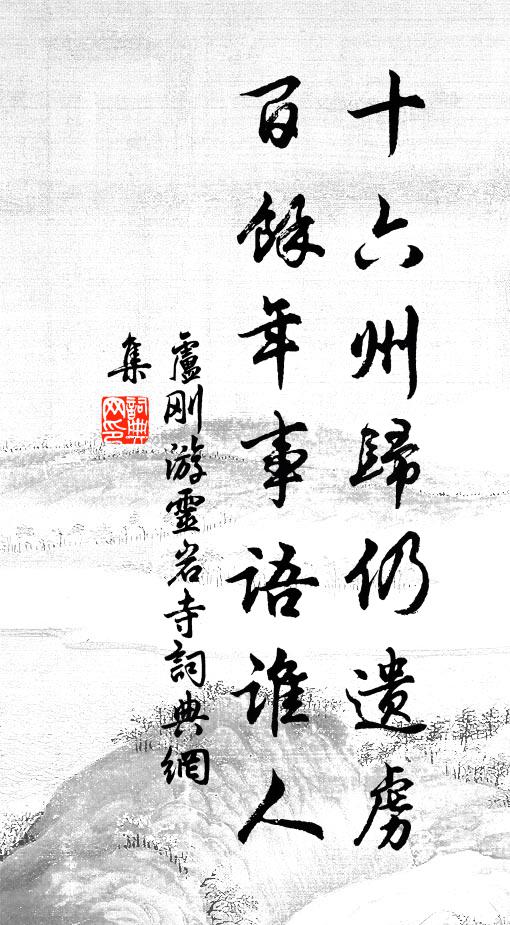 十六州歸仍遺虜
百餘年事語誰人
盧刚游靈岩寺詞典網
集
詞典網印